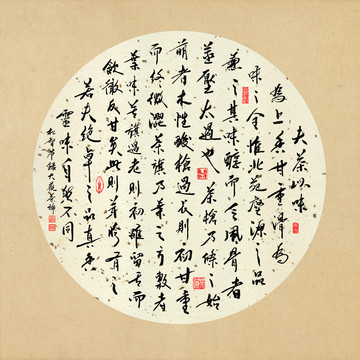 夫茶以味
為上香甘重滑為
味之全惟北苑壑源之品
兼之其味醇而乏風骨者
蒸壓太過也茶槍乃條之始
萌者木性酸槍過長則初甘重
而終微澀茶旗乃葉之方敷者
葉味苦旗過老則初雖留舌而
飲徹反甘矣此則芽胯有之
若夫絕卓之品真香
靈味自然不同
節錄大觀茶論